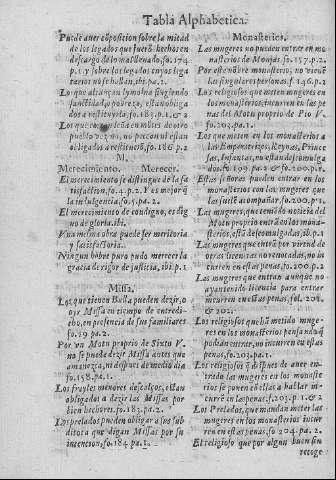 Tabla Alphabetica.
Puede auer cõposicion sobre la mitad
de los legados que fuerõ hechos en
descargo de lo mal lleuado, fo. 174
p. 1. y sobre los legados cuyos lega
tarios no se hallan, ibi. pa. 2.
Los que alcançan lymosna fingiendo
sanctidad, o pobreza, estan obliga
dos a restituyrla, fo. 185. p. 1. & 2
Los que en miles de otro
pueblo no pecan ni estan
obligados a restituyr, fo. 186. p. 2
M.
Merecimiento. Merecer.
El merecimiento se distingue de la sa
tisfaction, fo. 4. p. 2. Y es mejor q̃
la indulgencia, fo. 5. pa. 2.
El merecimiento de condigno, es dig
no de gloria, ibi.
Vna mesma obra puede ser meritoria
y satisfactoria.
Ningun hõbre puro pudo merecer la
gracia de rigor de justicia, ibi. p. 1
Missa.
Los que tienen Bulla pueden dezir, o
oyr Missa en tiempo de entredi
cho, en presencia de sus familiares
fo. 19. pa. 2.
Por vn Motu proprio de Sixto V.
no se puede dezir Missa antes que
amanezca, ni despues de medio dia
fo. 158. pa. 1.
Los frayles menores descalços, estan
obligados a dezir las Missas por
bien hechores, fo. 183. pa. 2.
Los prelados pueden obligar a sus sub
ditos a que digan Missas por su
intencion, fo. 184. pa. 1.
Monasterios.
Las mugeres no pueden entrar en mo
nasterios de Monjas, fo. 157. p. 2.
Por este nõbre monasterio, no vienẽ
las singulares personas, f. 196. p. 2
Los religiosos que meten mugeres en
los monasterios, incurren en las pe
nas del Motu proprio de Pio V.
fo. 203. pa. 1.
Los que meten en los monasterios a
las Emperatrizes, Reynas, Prince
sas, Infantas, no estan descomulga
dos, f. 199. pa. 2. & fo. 200. p. 1.
Estas señoras pueden entrar en los
monasterios con las mugeres que
las suelẽ acompañar, fo. 200. p. 1.
Las mugeres, que teniendo noticia del
Motu proprio entran en los mo-
nasterios, estã descomulgadas, ibi. p. 1
Las mugeres que entrã por virtud de
otras licencias no reuocadas, no in
curren en las penas, fo. 200. p. 2
Las mugeres que entran aunque no
ayan tenido licencia para entrar
incurren en estas penas, fol. 201.
& 202.
Los religiosos que hã metido muge-
res en los monasterios pensando q̃
podian entrar, no incurren en estas
penas, fo. 203. pa. 1.
Los religiosos q̃ despues de auer en-
trado las mugeres en los monaste
rios se ponen en ellos a hablar in-
currẽ en las penas, f. 203. p. 1. & 2
Los Prelados, que mandan meter las
mugeres en los monasterios incur
ren en estas penas, fo. 204. pa. 2.
El religioso que por algun buen fin
recoge